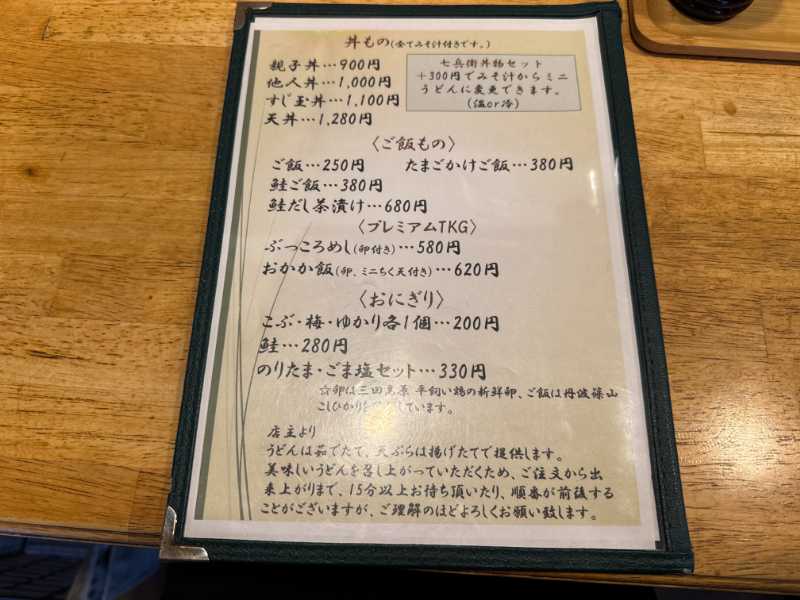 丼もの(全てみそ汁付きです。)
親子丼…900円
他人丼…1,000円
すじ玉丼…1,100円
天丼…1,280円
七兵衛丼物セット
+300円でみそ汁からミニ
うどんに変更できます。
(温or冷)
〈ご飯もの〉
ご飯…250円 たまごかけご飯…380円
鮭ご飯…380円
鮭だし茶漬け…680円
〈プレミアムTKG〉
ぶっころめし(卵付き)…580円
おかか飯(卵、ミニちく天付き)…620円
〈おにぎり〉
こぶ・梅・ゆかり各1個…200円
鮭…280円
のりたま・ごま塩セット…330円
☆卵は三田高原 平飼い鶏の新鮮卵、ご飯は丹波篠山
こしひかりを しています。
店主より
うどんは茹でたて、天ぷらは揚げたてで提供します。
美味しいうどんを召し上がっていただくため、ご注文から出
来上がりまで、15分以上お待ち頂いたり、順番が前後する
ことがございますが、ご理解のほどよろしくお願い致します。